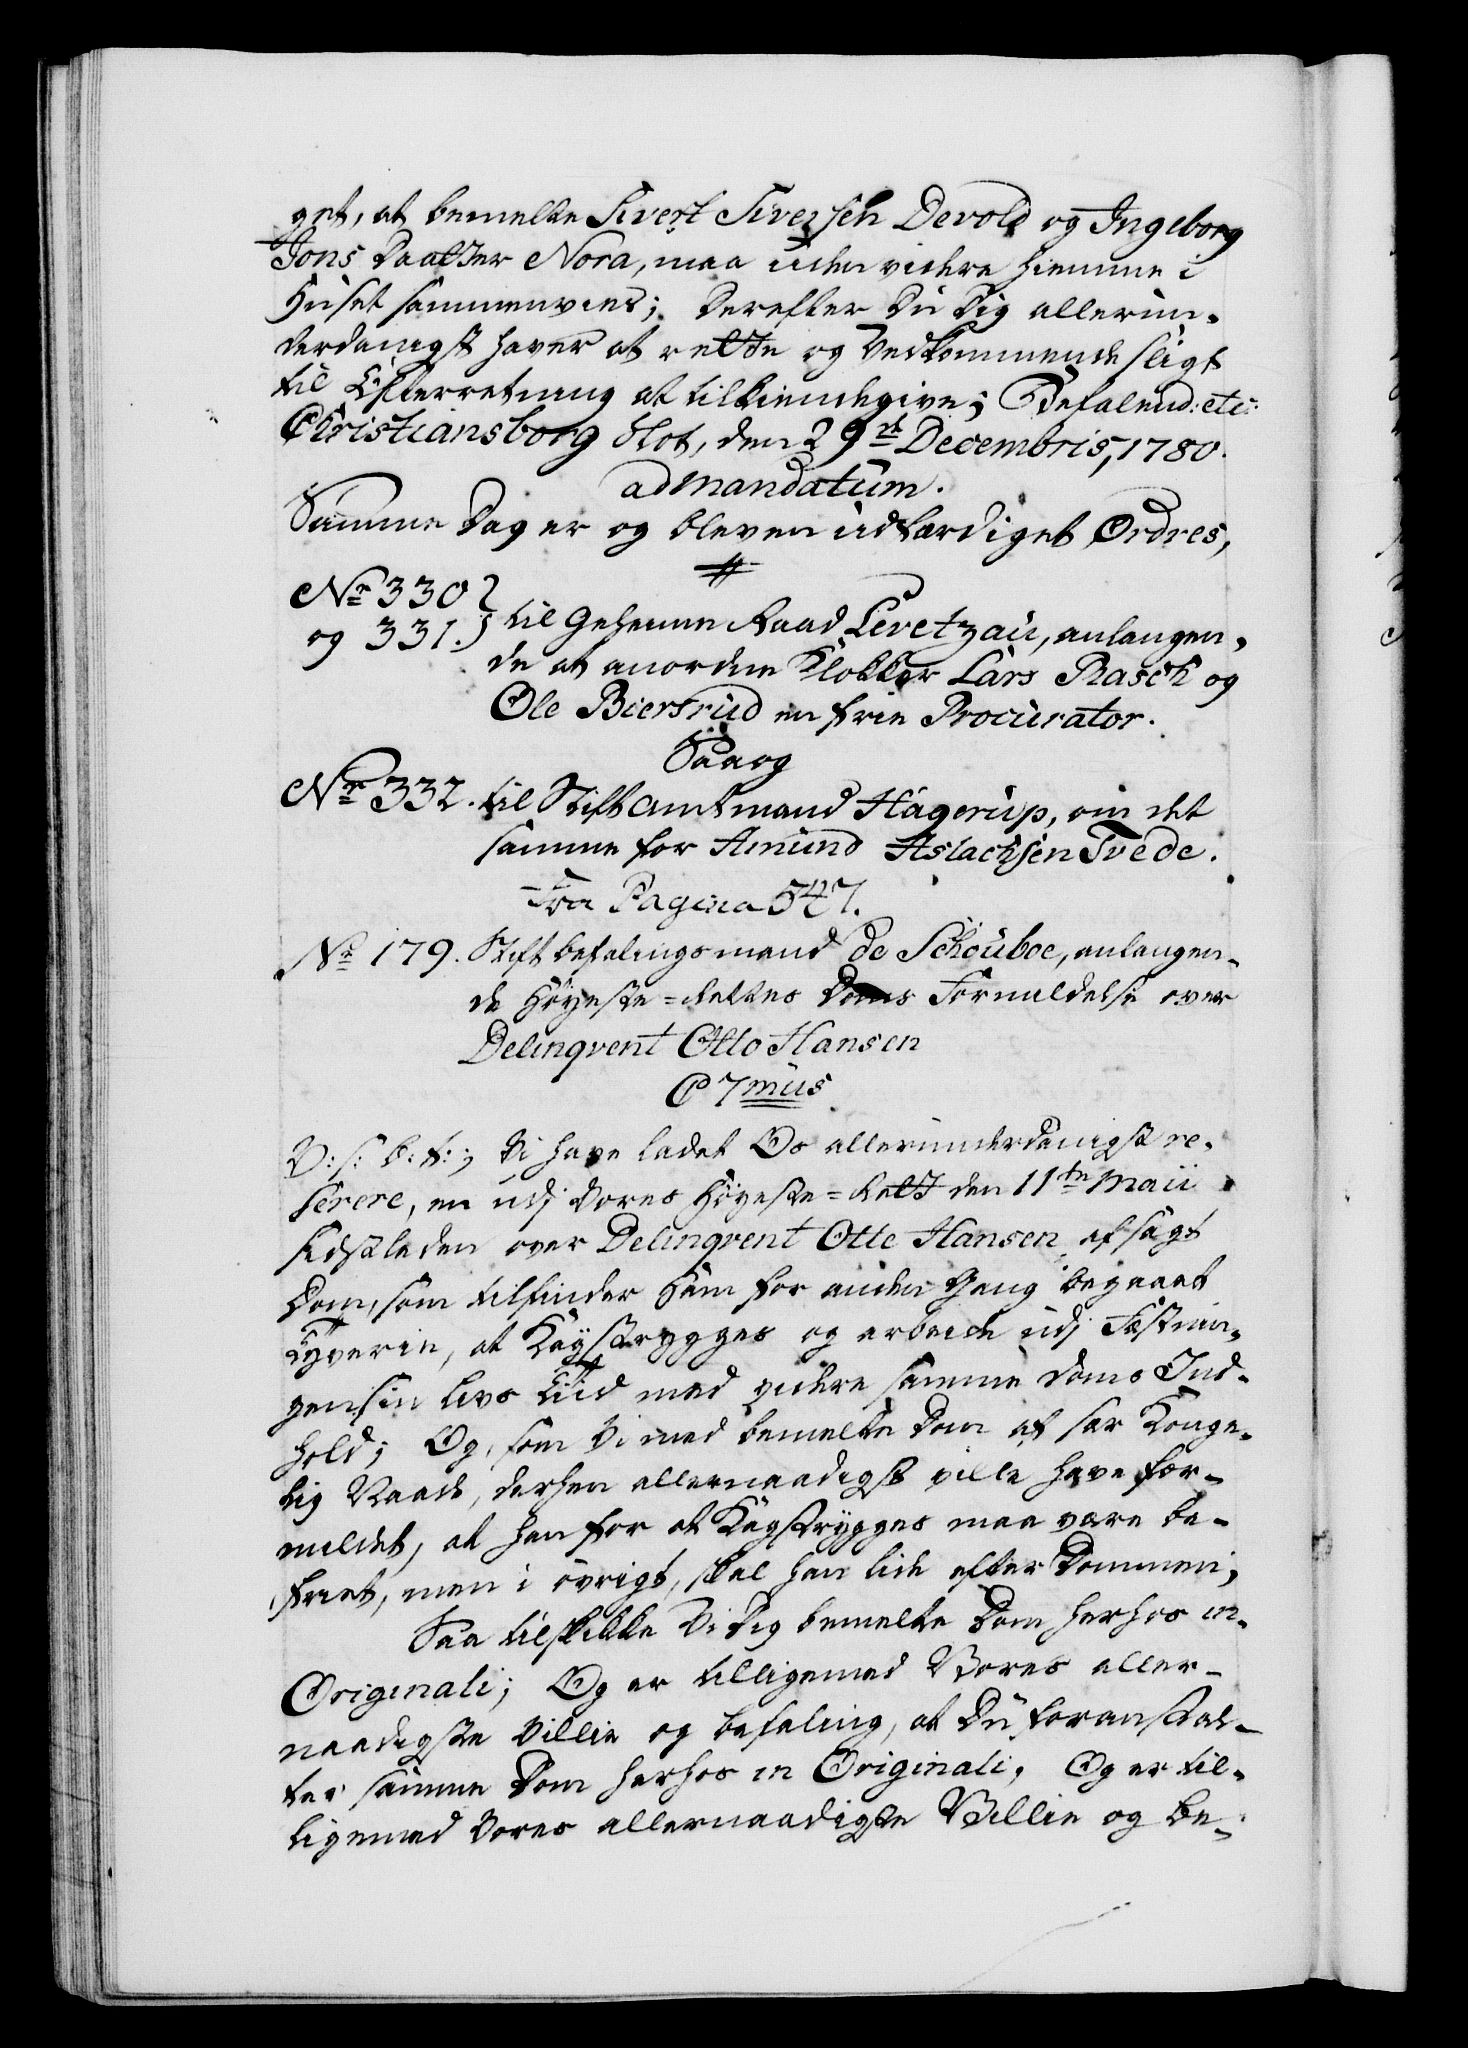 get, at bemelte Sivert Siversen Devold og Ingeborg
Jons Daatter Nora, maa uden videre hiemme i
Huset sammenvies; Derefter Du Dig allerun-
derdanigst haver at rette og Vedkommende sligt
til Efterretning at tilkiendegive; Befalend: etc:
Christiansborg Slot, den 29de Decembris, 1780.
ad mandatum.
Samme Dag er og bleven udfærdiget Ordres,
No 330
og 331. til Geheime Raad Levetzau, anlangen-
de at anordne Klokker Lars Rasch og
Ole Biersrud en frie Procurator.
Saa og
Nr 332. til Stiftamtmand Hagerup, om det
samme for Amund Aslachsen Tvede.
Fra Pagina 547.
No 179. Stiftbefalingsmand de Schouboe, anlangen-
de Höyeste-Rettes Doms Formildelse over
Delinqvent Otto Hansen
C 7mus
V: s: b: t:; Vi have ladet Os allerunderdanigst re-
ferere, en udj Vores Höyeste-Rett den 11te Maii
sidstleden over Delinqvent Otte Hansen afsagt
Dom, som tilfinder Ham for anden Gang begaaet
Tyverie, at Kagstryges og arbeide udj Fæstnin-
gen sin Livs Tiid med videre samme Doms Ind-
hold; Og, som Vi med bemelte Dom af sær Konge-
lig Naade, derhen allernaadigst ville have for-
mildet, at han for at Kagstryges maa være be-
friet, men i övrigt, skal han lide efter Dommen;
Saa tilskikke Vi Dig bemelte Dom herhos in
Originali; Og er tilligemed Vores aller-
naadigste Villie og befaling, at Du foranstal-
ter samme Dom herhos in Originali, Og er til-
ligemed Vores allernaadigste Villie og be-